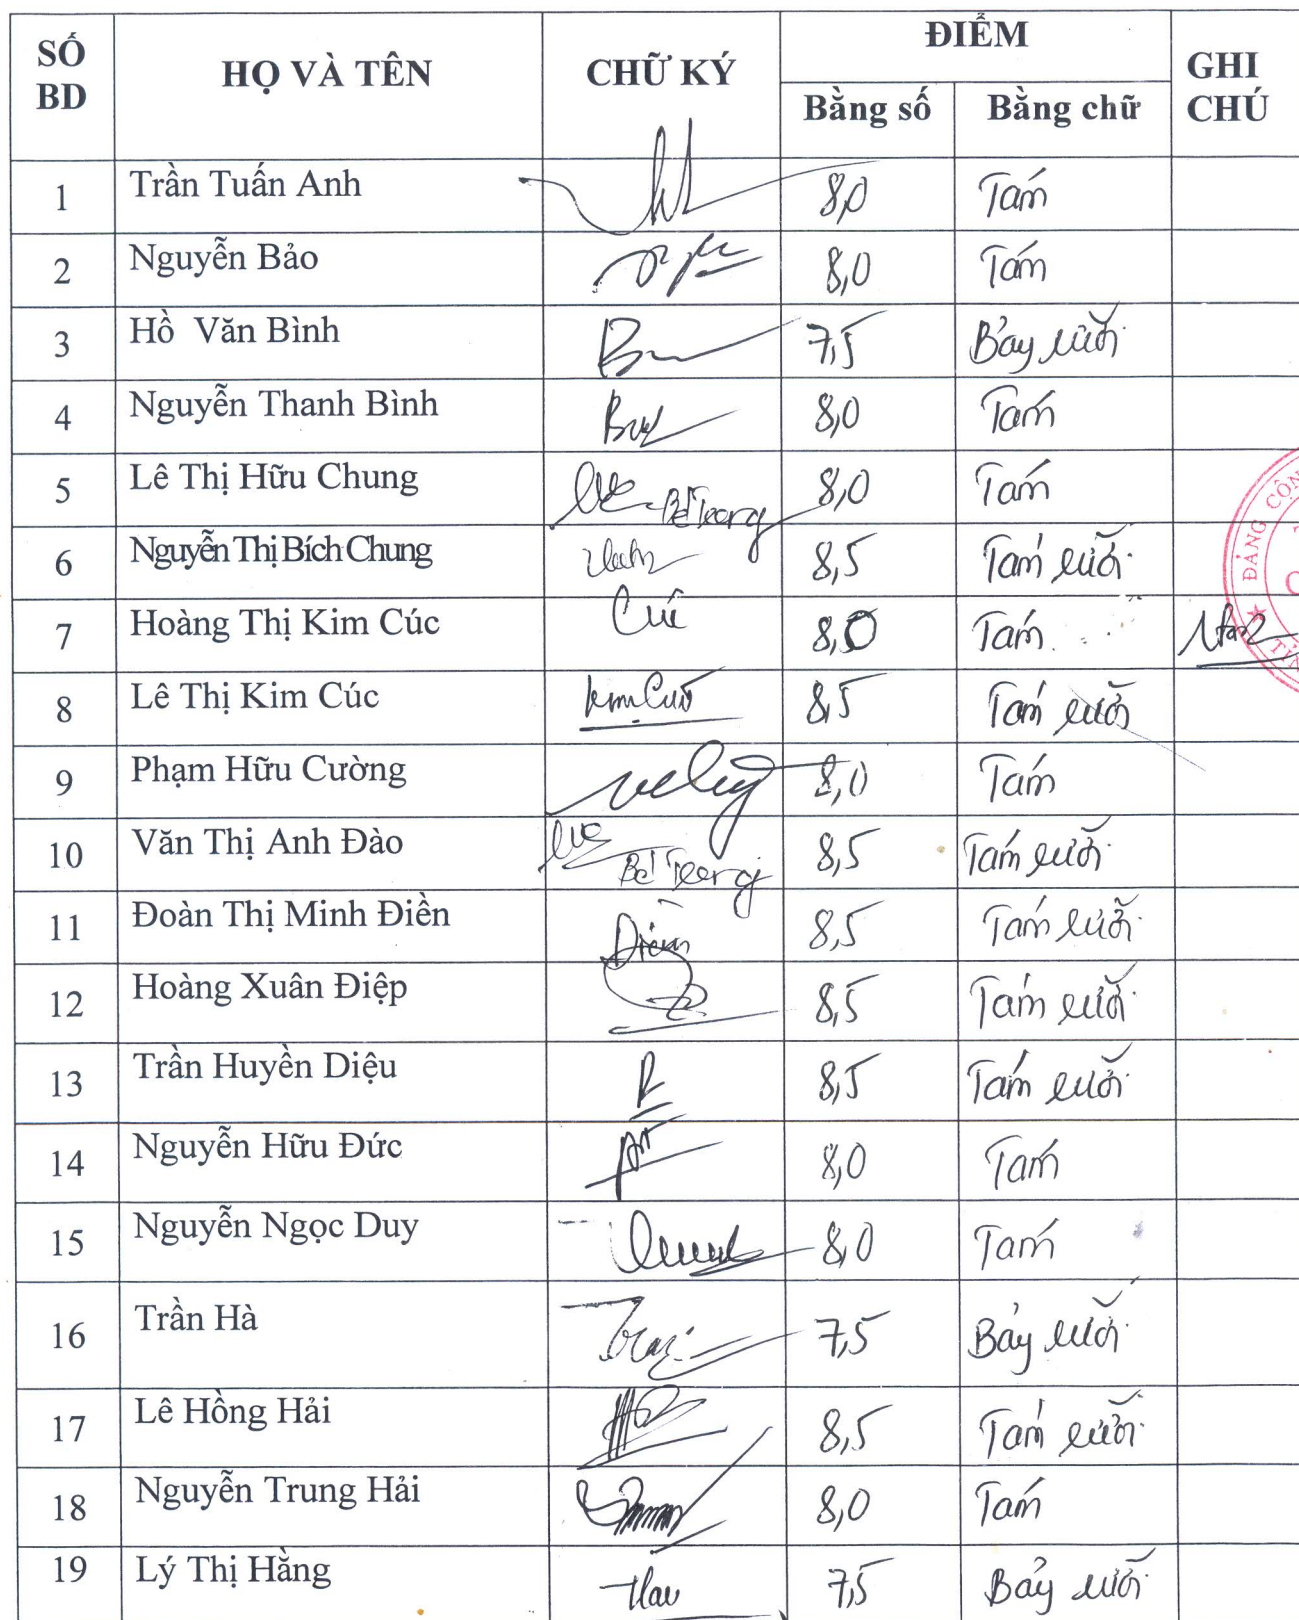 SỐ BD HỌ VÀ TÊN CHỮ KÝ ĐIỂM GHI CHÚ
Bằng số Bằng chữ
1 Trần Tuấn Anh 8,0 Tám
2 Nguyễn Bảo 8,0 Tám
3 Hồ Văn Bình 7,5 Bảy rưỡi
4 Nguyễn Thanh Bình 8,0 Tám
5 Lê Thị Hữu Chung 8,0 Tám
6 Nguyễn Thị Bích Chung 8,5 Tám rưỡi
7 Hoàng Thị Kim Cúc Cúc 8,0 Tám
8 Lê Thị Kim Cúc Kim Cúc 8,5 Tám rưỡi
9 Phạm Hữu Cường 8,0 Tám
10 Văn Thị Anh Đào 8,5 Tám rưỡi
11 Đoàn Thị Minh Điền Điền 8,5 Tám rưỡi
12 Hoàng Xuân Điệp 8,5 Tám rưỡi
13 Trần Huyền Diệu 8,5 Tám rưỡi
14 Nguyễn Hữu Đức 8,0 Tám
15 Nguyễn Ngọc Duy 8,0 Tám
16 Trần Hà 7,5 Bảy rưỡi
17 Lê Hồng Hải 8,5 Tám rưỡi
18 Nguyễn Trung Hải 8,0 Tám
19 Lý Thị Hằng 7,5 Bảy rưỡi
ĐẢNG CÔN